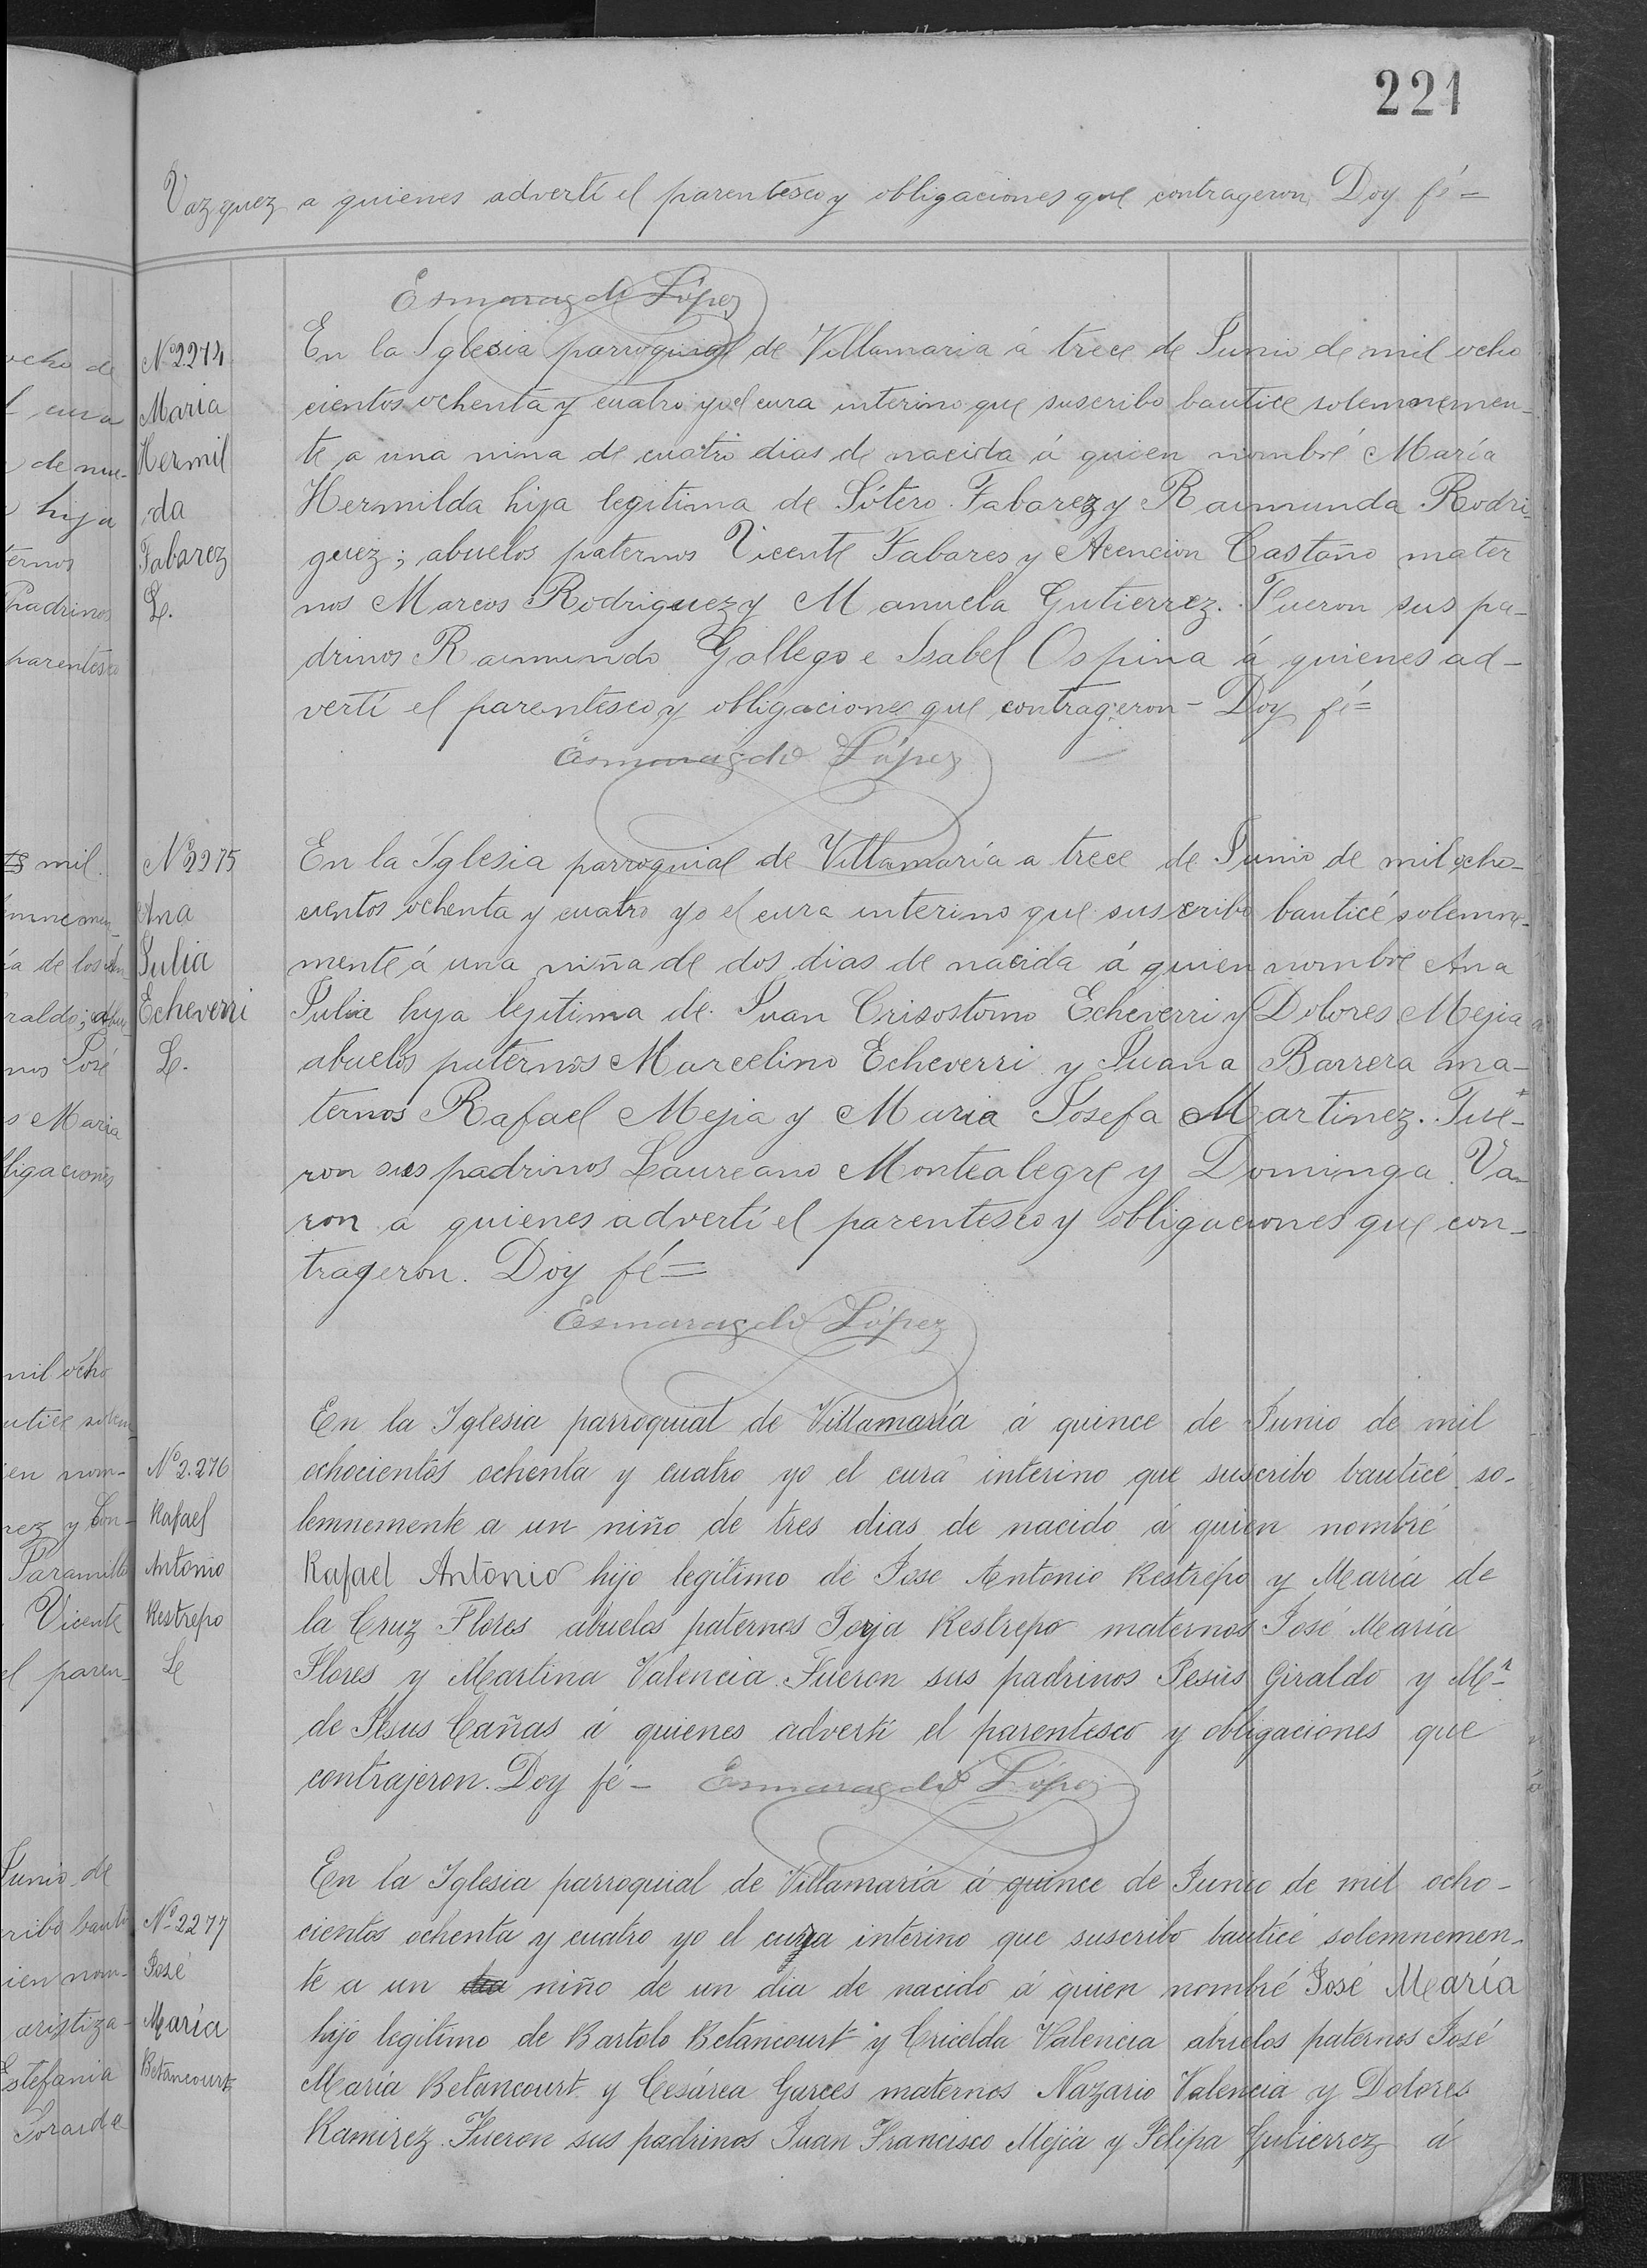 221
Vazquez a quienes advertí el parentesco y obligaciones que contrageron Doy fé=
Esmaragdo López
Nº 2274
Maria
Hermil
da
Tabarez
L.
En la Iglesia parroquial de Villamaria á trece de Junio de mil ocho
cientos ochenta y cuatro yo el cura interino que suscribo bautice solemnemen-
te a una nina de cuatro dias de nacida á quien nombré María
Hermilda hija legitima de Sótero Tabarez y Raimunda Rodri-
guez; abuelos paternos Vicente Tabares y Acencion Castaño mater
nos Marcos Rodriguez y Manuela Gutierrez. Fueron sus pa-
drinos Raimundo Gallego e Isabel Ospina á quienes ad-
vertí el parentesco y obligaciones que contrageron - Doy fé=
Esmaragdo López
Nº 2275
Ana
Julia
Echeverri
L.
En la Iglesia parroquial de Villamaría a trece de Junio de mil ocho-
cientos ochenta y cuatro yo el cura interino que suscribo bauticé solemne-
mente á una niña de dos dias de nacida á quien nombre Ana
Julia hija legitima de Juan Crisostomo Echeverri y Dolores Mejia
abuelos paternos Marcelino Echeverri y Juana Barrera ma-
ternos Rafael Mejia y Maria Josefa Martinez. Fue-
ron sus padrinos Laureano Montealegre y Dominga Va-
ron a quienes advertí el parentesco y obligaciones que con-
trageron. Doy fé=
Esmaragdo López
Nº 2.276
Rafael
Antonio
Restrepo
L
En la Iglesia parroquial de Villamaría á quince de Junio de mil
ochocientos ochenta y cuatro yo el cura interino que suscribo bauticé so-
lemnemente a un niño de tres dias de nacido á quien nombré
Rafael Antonio hijo legítimo de Jose Antonio Restrepo y María de
la Cruz Flores abuelos paternos Borja Restrepo maternos José María
Flores y Martina Valencia. Fueron sus padrinos Jesús Giraldo y Mª
de Jesus Cañas á quienes advertí el parentesco y obligaciones que
contrajeron. Doy fé - Esmaragdo López
Nº 2277
José
María
Betancourt
En la Iglesia parroquial de Villamaría á quince de Junio de mil ocho-
cientos ochenta y cuatro yo el cura interino que suscribo bauticé solemnemen-
te a un niño de un dia de nacido á quien nombré José María
hijo legitimo de Bartolo Betancourt y Cricelda Valencia abuelos paternos José
María Betancourt y Cesárea Garces maternos Nazario Valencia y Dolores
Ramirez. Fueron sus padrinos Juan Francisco Mejía y Felipa Gutierrez á